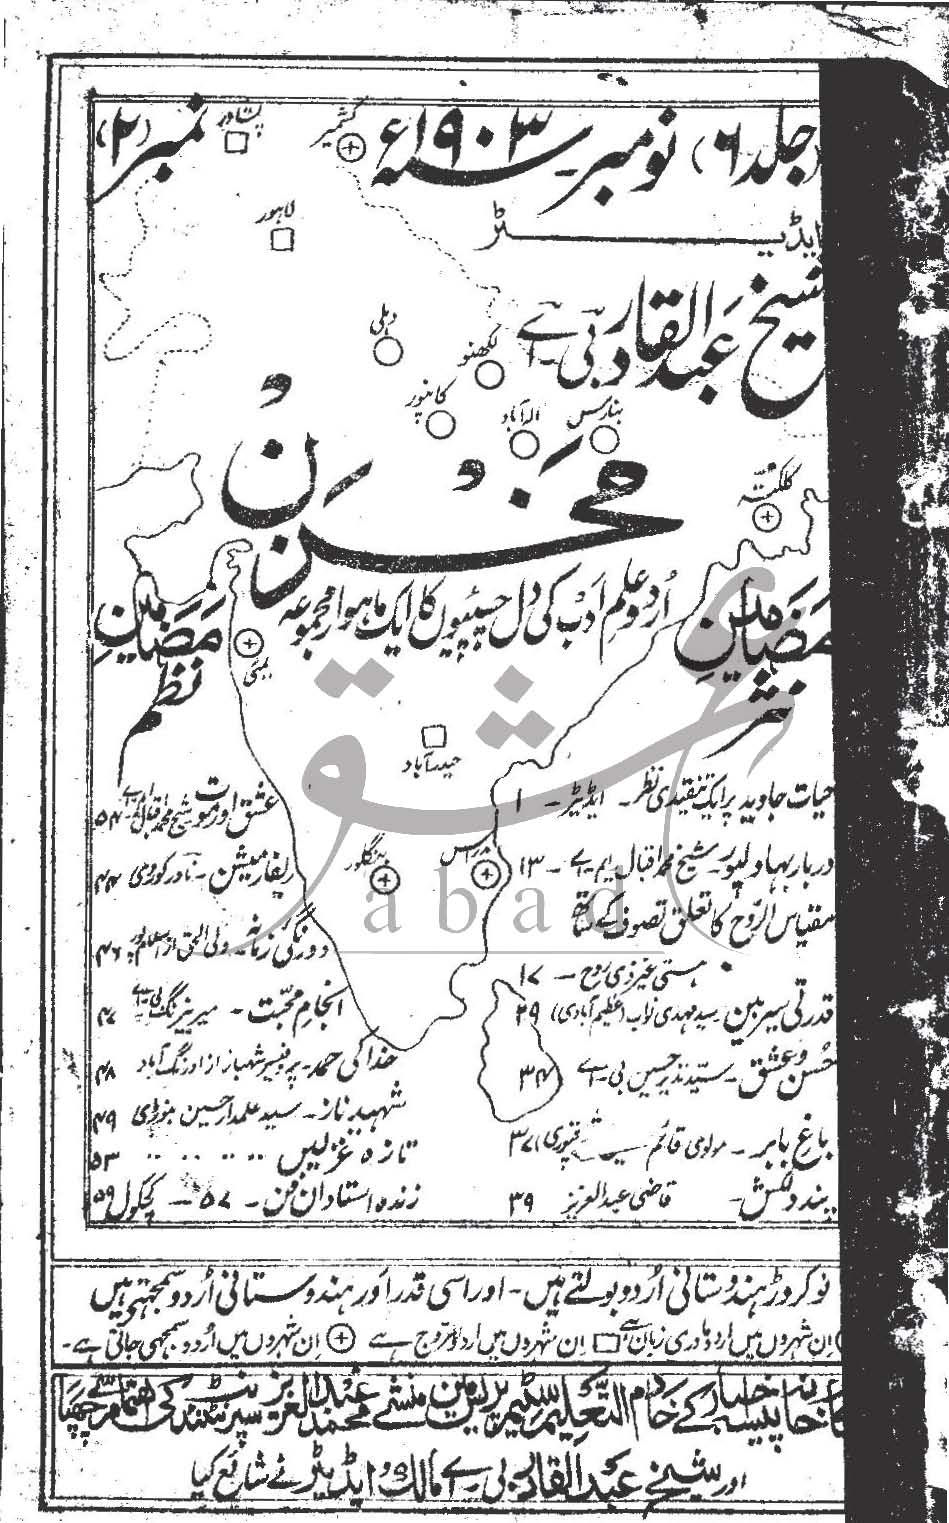 (جلد ۶) نومبر ۱۹۰۳ سنہ ء نمبر (۲)
پشاور
کشمیر
لاہور
ایڈیٹر
شیخ عبدالقادر بی۔اے
دہلی
لکھنو
کانپور
الہ آباد
بنارس
کلکتہ
مخزن
اردو علم ادب کی دل چسپیوں کا ایک ماہوار مجموعہ
بمبئی
حیدرآباد
مدراس
بنگلور
مضامین نثر
حیات جاوید پر ایک تنقیدی نظر۔ ایڈیٹر۔ ۱
دربار بہاولپور۔ شیخ محمد اقبال ایم۔اے۔ ۱۳
مقیاس الروح کا تعلق تصوف کے ساتھ
ہستی غیر ذی روح۔ ۱۷
قدرتی سیربین۔ سید مہدی نواب (عظیم آبادی) ۲۹
حسن و عشق۔ سید نذیر حسین بی۔اے ۳۴
باغ بابر۔ مولوی قائم ۳۷
پند دلکش۔ قاضی عبدالعزیز ۳۹
مضامین نظم
عشق اور موت شیخ محمد اقبال ایم۔اے ۵۴
ریفارمیشن۔ نادر کوروی ۴۴
دورنگی زمانہ۔ ولی الحق از اسلام پور ۴۶
انجام محبت۔ میر نیرنگ بی۔اے ۴۷
خدا کی حمد۔ پروفیسر شہباز از اورنگ آباد ۴۸
شہید ناز۔ سید علمدار حسین ۴۹
تازہ غزلیں ۵۳
زندہ استادان فن۔ ۵۷ ۔ کچکول ۵۹
نو کروڑ ہندوستانی اُردو بولتے ہیں۔ اور اسی قدر اور ہندوستانی اُردو سمجھتے ہیں
اِن شہروں میں اردو مادری زبان ہے □ اِن شہروں میں اردو مروج ہے ⊕ اِن شہروں میں اُردو سمجھی جاتی ہے۔
پیسہ اخبار کے خادم التعلیم سٹیم پریس میں منشی محمد عبدالعزیز سپرنٹنڈنٹ کے اہتمام سے چھپا
اور شیخ عبدالقادر بی۔اے مالک و ایڈیٹر نے شائع کیا
عشق
abad